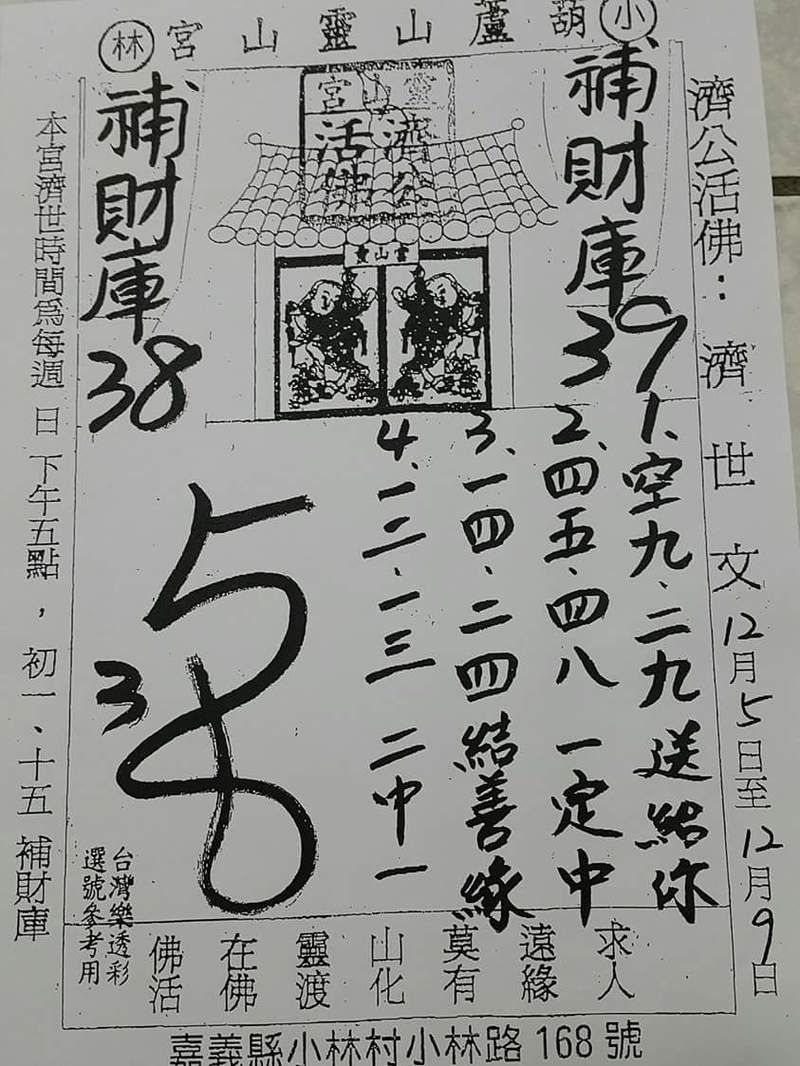 小葫蘆山靈山宮林
濟公活佛：濟世文12月5日至12月9日
補財庫39
靈山宮
濟公
活佛
靈山宮
補財庫38
1、空九、二九送給你
2、四五、四八一定中
3、一四、二四結善緣
4、一二、一三二中一
3
台灣樂透彩
選號參考用
求人
遠緣
莫有
山化
靈渡
在佛
佛活
本宮濟世時間為每週日下午五點，初一、十五補財庫
嘉義縣小林村小林路168號